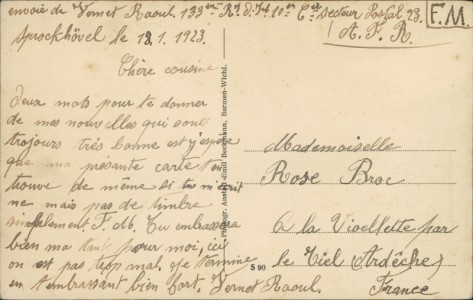 envoie de Vernet Raoul. 133em R. d. Inf. 10em Cie Secteur Postal 23.
A. F. R.
F. M.
Sprockhövel le 18.1.1923.
Chère cousine
Deux mots pour te donner
de mes nouvelles qui sont
toujours très bonne est j'espère
que ma présante carte t'en
trouve de meme si tu m'écrit
ne mais pas de timbre
simplement F. M. Tu embrassera
bien ma pour moi, ici
on est pas trop mal. Je termine
en t'embrassant bien fort. Vernet Raoul.
Mademoiselle
Rose Broc
à la Viollette par
le Teil Ardèche
France
Barmen-Wichl.
S 90